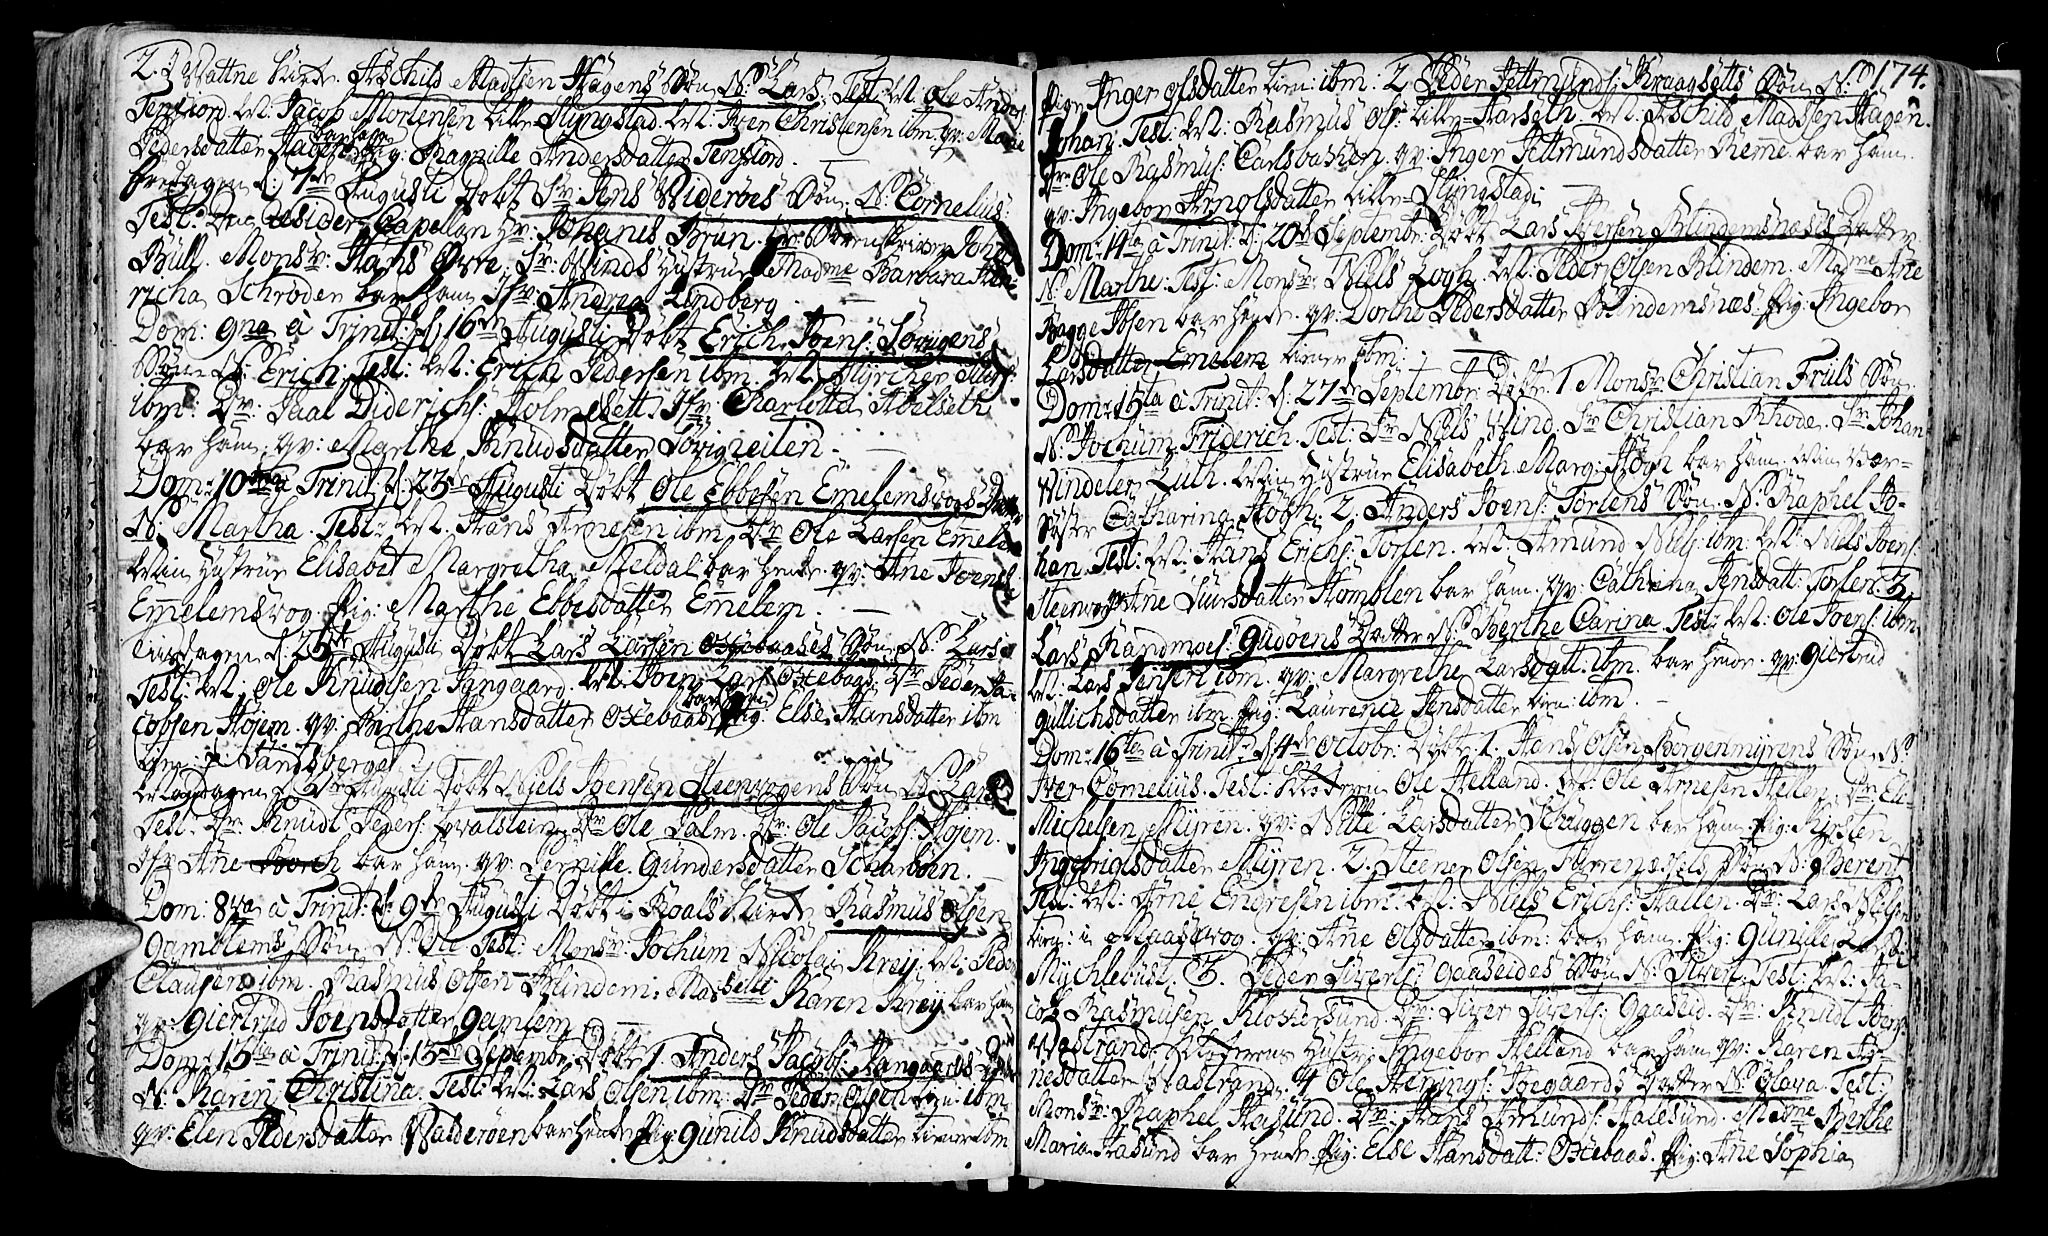 2. I Vattne Kirke. Aschild Madtsen Hagens Søn N: Lars. Test: Ole Anders:
Tenfiord. Jacop Mortensen Lille Slyngstad. Iver Christensen ibm. qv: Marte
Pedersdatter Hagen bar ham Pig: Ragnille Andersdatter Tenfiord.
Fredagen d: 7de Augusti Døbt Sr: Jens Viderøes Søn N: Cornelius:
Test: Capellan Hr: Johanis Brun. Sorenskriver John
Bull. Monsr: Hans Øvre, Sr: Winds Hustrue Madme Barbara Hen-
richa Schrøder bar ham Jfr: Andrea Lindberg.
Dom: 9na à Trinit: d: 16de Augusti Døbt Erich Joens: Løvigens
Søn N: Erich. Test: Erich Pedersen ibm.
ibm: Paal Diderichs: Holmesett. Jfr: Charlotta Abelseth
bar ham. qv: Marthe Knudsdatter Løvigneiten.
Dom: 10ma à Trinit: d: 23de Augusti Døbt Ole Ebbesen Emelemsvogs Datter
N: Martha. Test: Hans Arnesen ibm Dr: Ole Larsen Emelem
min Hustrue Elisabet Margretha Meldal bar hende. qv: Ane Joensd:
Emelemsvog. Pig: Marthe Ebbesdatter Emelem.
Tiisdagen d: 25de Augusti Døbt Lars Larsen Oxebaases Søn N: Lars
Test: Ole Knudsen Jangaard. Joen Lars: Oxebaas, Dr: Peder Ja-
cobsen Høiem. qv: Birthe Hansdatter Oxebaas bar ham Pig: Else Hansdatter ibm
Løverdagen Augusti Døbt Niels Joensen Steenvogens Søn N: Lars
Test: Dr: Knudt Peders: Qvalstein. Dr: Ole Palm. Dr: Ole Jacobs: Høiem.
Jfr Ane bar ham. qv: Pernille Gundersdatter Scharbøen.
Dom: 8va à Trinit: d: 9de Augusti Døbt i Roals Kirke Rasmus Olsen
Gamblems Søn N: Ole Test: Monsr: Jochum Nicolai Krey, Peder
Clausen ibm. Rasmus Olsen Blindem: Karen Krey bar ham
qv: Giertrud Joensdatter Gamlem.
Dom: 13tia à Trinit: d: 13de Septembr: Døbt 1. Anders Jacobs: Jangaards Datter
N: Karen Christina. Test: Lars Olsen ibm: Dr: Peder Olsen ibm
qv: Elen Pedersdatter Valderøen bar hende. Pig: Gunild Knudsdatter tiener ibm
174.
Pige Inger Olsdatter tien: ibm: 2 Peder Jettmunds: Kraagsetts Søn N:
Johan. Test: Rasmus Ols: Lille-Harseth. Aschild Madtsen Hagen.
Dr: Ole Rasmus: Carlsbachen. qv: Inger Jettmundsdatter Reme. bar ham.
qv: Ingebor Arnolsdatter Lille-Slyngstad.
Dom: 14ta à Trinit: d: 20de Septembr: Døbt Lars Iversen Blindemsnæses Datter
N: Marthe. Test: Monsr: Niels Logh. Peder Olsen Blindem. Madme Ane
Bagge Ibsen bar hende. qv: Dorthe Pedersdatter Blindemsnæs. Pig: Ingebor
Larsdatter Emelem tiener ibm:
Dom: 15ta à Trinit: d: 27de Septembr: Døbt 1 Monsr: Christian Friis Søn
N: Jochum Friderich. Test: Sr Niels Wind. Sr Christian Rhode. Sr Johan
Vindeler Luth. min Hustrue Elisabeth Marg: Høgh bar ham.
Søster Catharina Høgh. 2. Anders Joens: Torlens Søn N: Raphel Jo-
han. Test: Hans Erichs: Torlen. Amund Niels: ibm: Niels Joens:
Steenvog. Ane Siursdatter Homblen bar ham. qv: Cathrina Jensdatt: Torlen. 3
Lars Randmoes: Gudøens Datter N: Berthe Carina. Test: Ole Joens: ibm
Lars Jensen ibm. qv: Margrethe Larsdatt: ibm. bar hende. qv: Giertrud
Gullichsdatter ibm. Pig: Laurence Jensdatter tien: ibm.
Dom: 16ta à Trinit: d: 4de Octobr: Døbt 1. Hans Olsen Borgenmyrens Søn N:
Iver Cornelius. Test: Ole Helland. Ole Arnesen Hellen. Dr: Eli-
Michelsen Myren. qv: Nille Larsdatter Schuggen bar ham. Pig: Kirsten
Ingebrigtsdatter Myren. 2. Steener Olsen Farrenæssets Søn N: Berent
Test: Arne Engresen ibm: Niels Erichs: Hallen. Dr: Lars Nielsen
tien: i Maasvog. qv: Ane Olsdatter ibm: bar ham. Pig: Gunille Larsd:
Mychlebust. 3. Peder Sivers: Gaaseides Søn N: Siver. Test: Ja-
cob Rasmusen Klochersund. Dr: Siver Sivers: Gaaseid. Dr: Knudt Joens:
Nastrand. Hustr: Ingebor Helland bar ham. qv: Karen Ar-
nesdatter Nastrand. 4 Ole Hemings: Joegaards Datter N: Olava. Test:
Monsr: Raphel Aasund. Dr: Hans Amunds: Aalesund. Madme Berthe
Maria Aasund bar hende. Pig: Else Hansdatt: Oxebaas. Pig: Ane Sophia